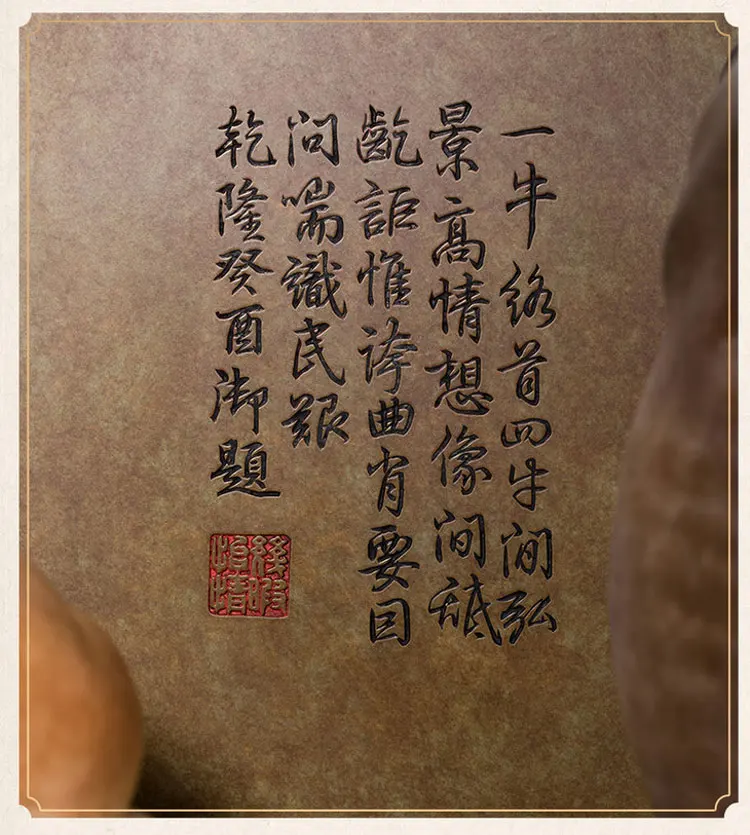 一牛絡首四牛閒弘
景高情想像間舐
齕詎惟誇曲肖要囙
問喘識民艱
乾隆癸酉御題
幾暇怡情